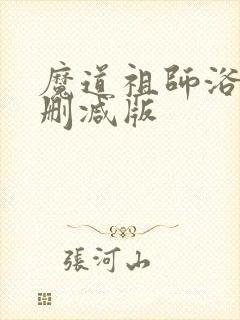 魔道祖師浴
删减版
張河山